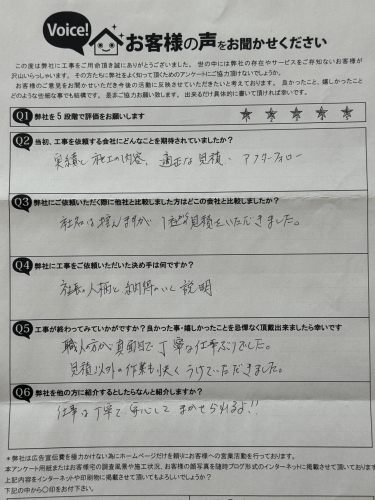 Voice!
お客様の声をお聞かせください
この度は弊社に工事をご用命頂き誠にありがとうございました。世の中には弊社の存在やサービスをご存知ないお客様が
沢山いらっしゃいます。その方たちに弊社をよく知って頂くためのアンケートにご協力頂けないでしょうか。
お客様のご意見をお聞かせいただき今後の活動に反映させていただきたいと考えております。良かったこと、嬉しかったこと
どのような些細な事でも結構です。是非ご協力お願い致します。出来るだけ具体的に書いて頂ければ幸いです。
Q1 弊社を5段階で評価をお願いします ★ ★ ★ ★ ★
Q2 当初、工事を依頼する会社にどんなことを期待されていましたか?
実績と施工の内容、適正な見積、アフターフォロー
Q3 弊社にご依頼いただく際に他社と比較しました方はどこの会社と比較しましたか?
社名は控えますが 見積をいただきました。
Q4 弊社に工事をご依頼いただいた決め手は何ですか?
社長の人柄と納得のいく説明
Q5 工事が終わってみていかがですか?良かった事・嬉しかったことを忌憚なく頂戴出来ましたら幸いです
職人の方が真面目で丁寧な仕事ぶりでした。
見積以外の作業も快くうけていただきました。
Q6 弊社を他の方に紹介するとしたらなんと紹介しますか?
仕事は丁寧で安心してまかせられるよ!!
※弊社は広告宣伝費を極力かけない為にホームページだけを頼りにお客様への営業活動を行っております。
本アンケート用紙またはお客様宅の調査風景や施工状況、お客様の顔写真を随時ブログ形式のインターネットに掲載させて頂いております
上記内容をインターネットや印刷物に掲載させて頂いてもよろしいでしょうか?
下記の中から○印をお付け下さい。